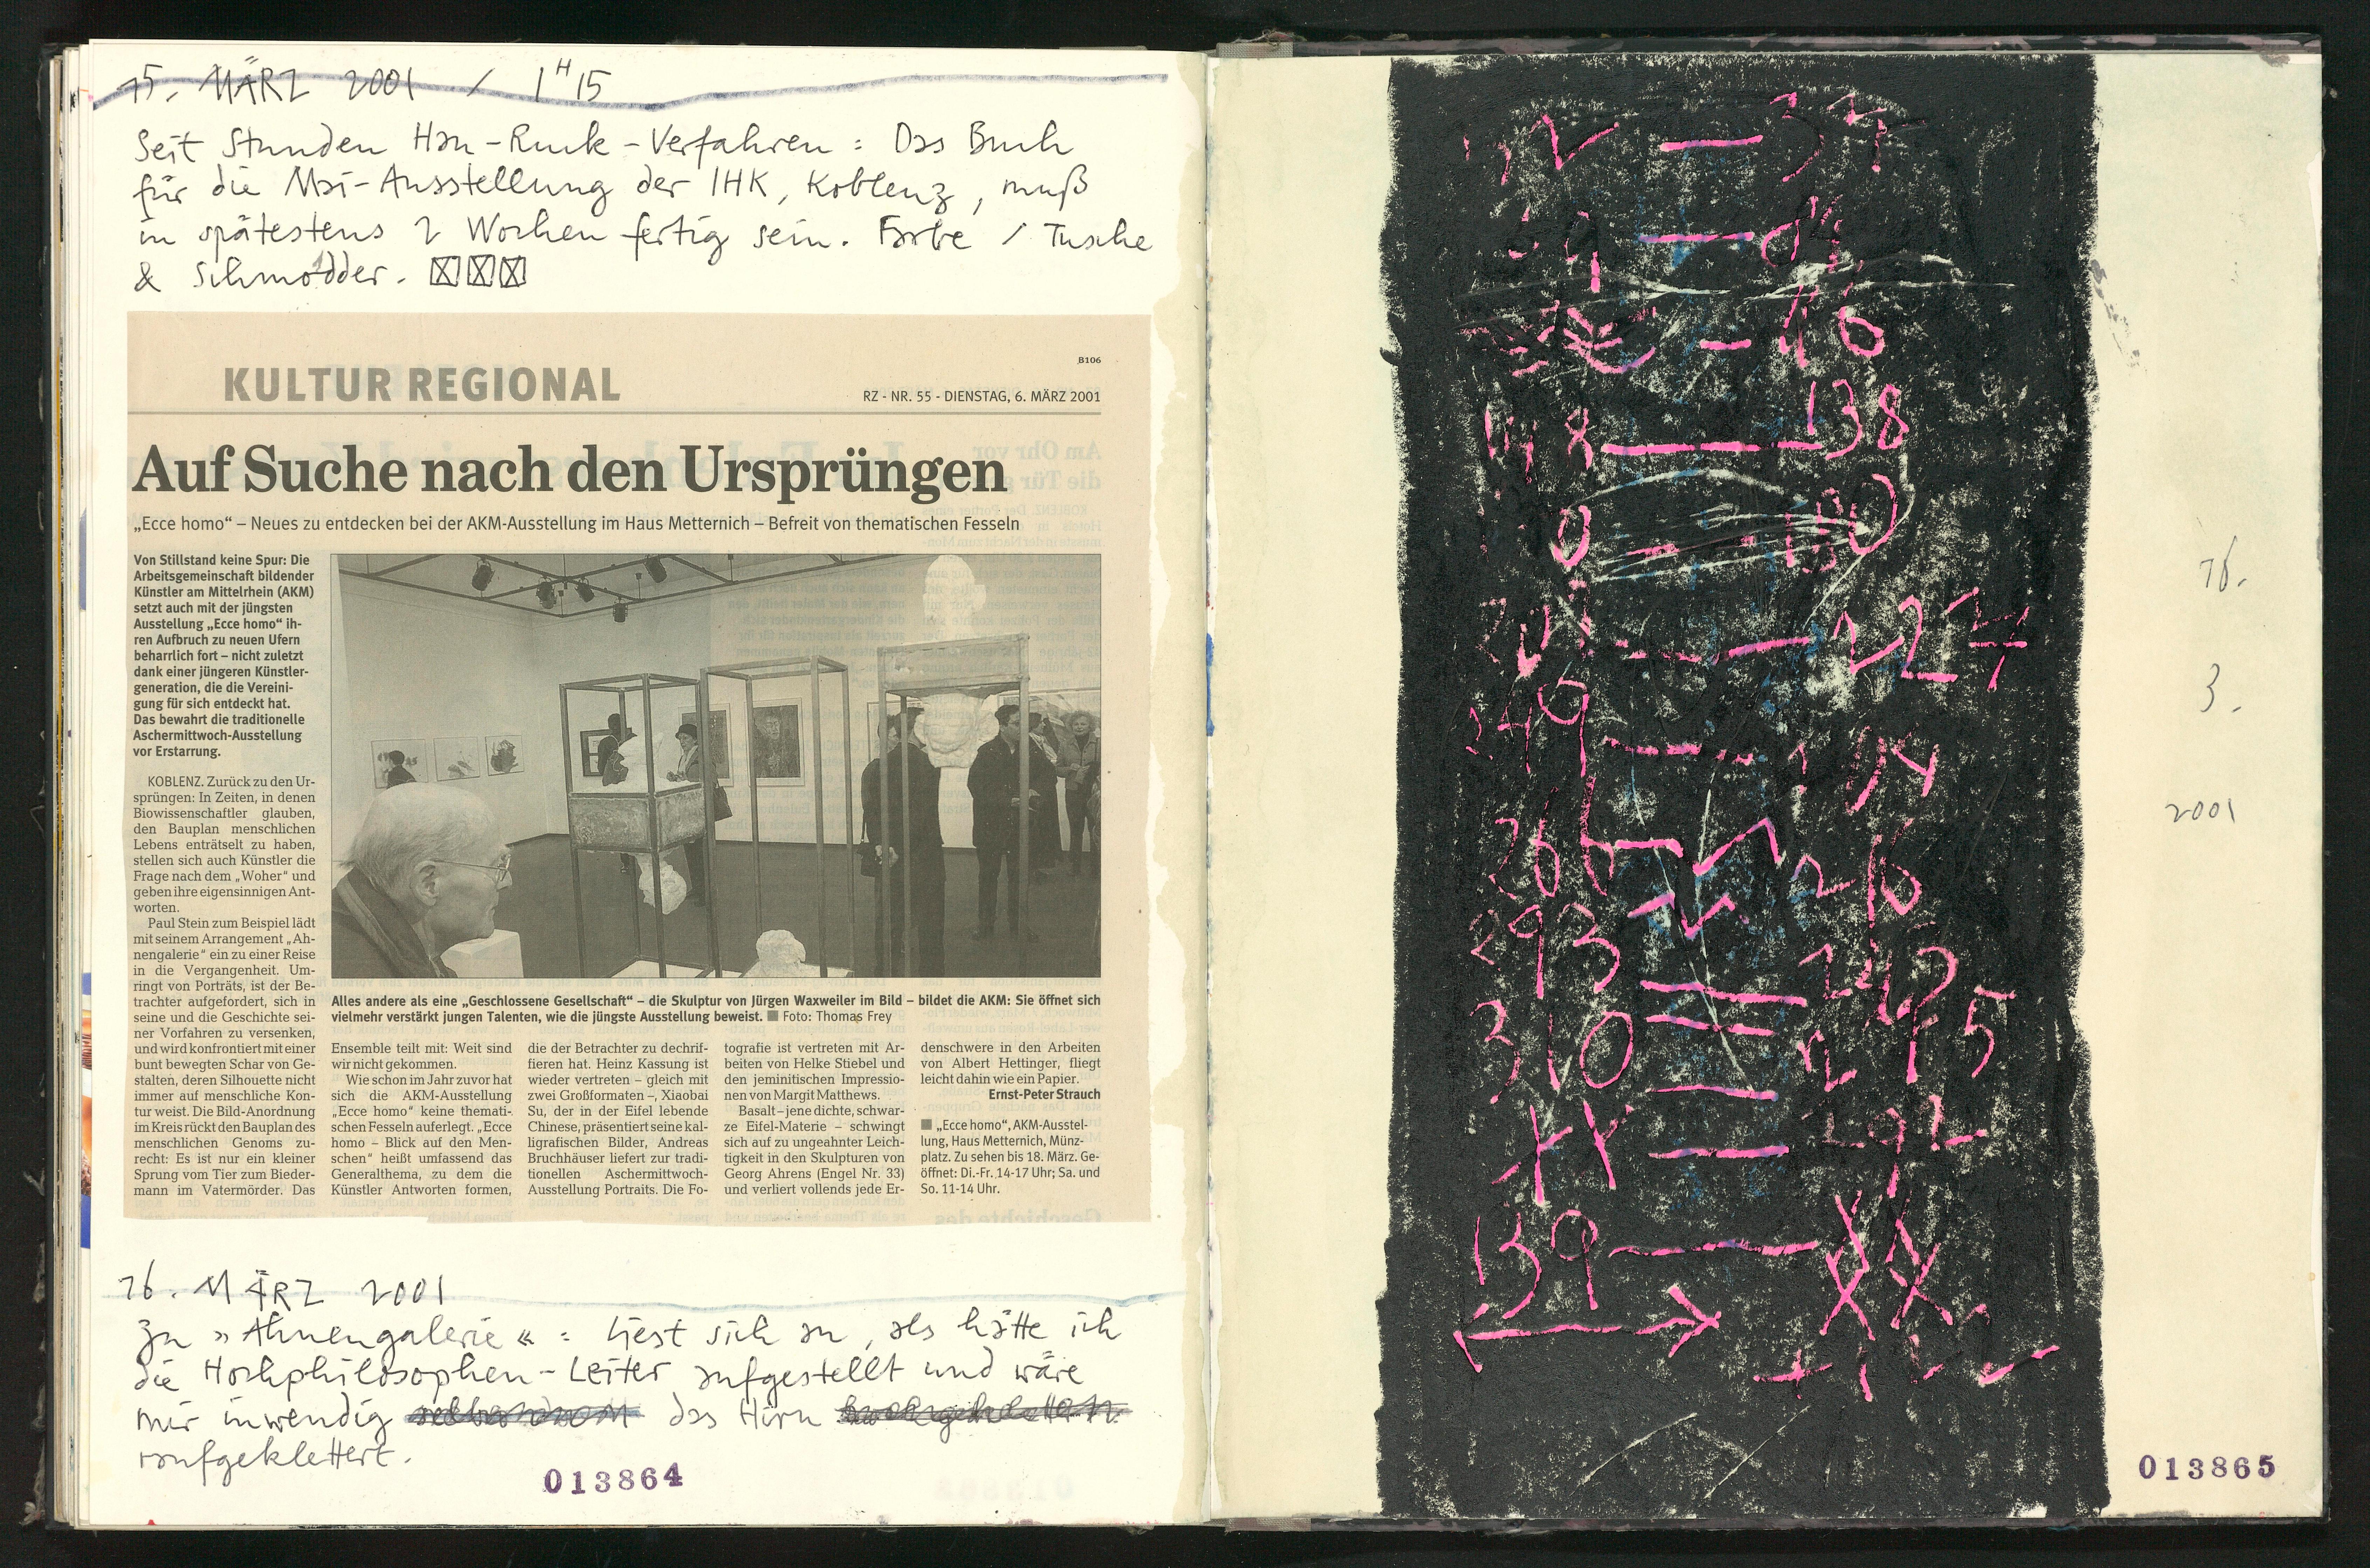 15. MÄRZ 2001 / 1H15
Seit Stunden Hau-Ruck-Verfahren: Das Buch
für die Mai-Ausstellung der IHK, Koblenz, muß
in spätestens 2 Wochen fertig sein. Farbe / Tusche
& Schmodder.
B106
KULTUR REGIONAL
RZ - NR. 55 - DIENSTAG, 6. MÄRZ 2001
Auf Suche nach den Ursprüngen
„Ecce homo“ – Neues zu entdecken bei der AKM-Ausstellung im Haus Metternich – Befreit von thematischen Fesseln
Von Stillstand keine Spur: Die
Arbeitsgemeinschaft bildender
Künstler am Mittelrhein (AKM)
setzt auch mit der jüngsten
Ausstellung „Ecce homo“ ih-
ren Aufbruch zu neuen Ufern
beharrlich fort – nicht zuletzt
dank einer jüngeren Künstler-
generation, die die Vereini-
gung für sich entdeckt hat.
Das bewahrt die traditionelle
Aschermittwoch-Ausstellung
vor Erstarrung.
KOBLENZ. Zurück zu den Ur-
sprüngen: In Zeiten, in denen
Biowissenschaftler glauben,
den Bauplan menschlichen
Lebens enträtselt zu haben,
stellen sich auch Künstler die
Frage nach dem „Woher“ und
geben ihre eigensinnigen Ant-
worten.
Paul Stein zum Beispiel lädt
mit seinem Arrangement „Ah-
nengalerie“ ein zu einer Reise
in die Vergangenheit. Um-
ringt von Porträts, ist der Be-
trachter aufgefordert, sich in
seine und die Geschichte sei-
ner Vorfahren zu versenken,
und wird konfrontiert mit einer
bunt bewegten Schar von Ge-
stalten, deren Silhouette nicht
immer auf menschliche Kon-
tur weist. Die Bild-Anordnung
im Kreis rückt den Bauplan des
menschlichen Genoms zu-
recht: Es ist nur ein kleiner
Sprung vom Tier zum Bieder-
mann im Vatermörder. Das
Alles andere als eine „Geschlossene Gesellschaft“ – die Skulptur von Jürgen Waxweiler im Bild – bildet die AKM: Sie öffnet sich
vielmehr verstärkt jungen Talenten, wie die jüngste Ausstellung beweist. ■ Foto: Thomas Frey
Ensemble teilt mit: Weit sind
wir nicht gekommen.
Wie schon im Jahr zuvor hat
sich die AKM-Ausstellung
„Ecce homo“ keine themati-
schen Fesseln auferlegt. „Ecce
homo – Blick auf den Men-
schen“ heißt umfassend das
Generalthema, zu dem die
Künstler Antworten formen,
die der Betrachter zu dechrif-
fieren hat. Heinz Kassung ist
wieder vertreten – gleich mit
zwei Großformaten –, Xiaobai
Su, der in der Eifel lebende
Chinese, präsentiert seine kal-
ligrafischen Bilder, Andreas
Bruchhäuser liefert zur tradi-
tionellen Aschermittwoch-
Ausstellung Portraits. Die Fo-
tografie ist vertreten mit Ar-
beiten von Helke Stiebel und
den jeminitischen Impressio-
nen von Margit Matthews.
Basalt – jene dichte, schwar-
ze Eifel-Materie – schwingt
sich auf zu ungeahnter Leich-
tigkeit in den Skulpturen von
Georg Ahrens (Engel Nr. 33)
und verliert vollends jede Er-
denschwere in den Arbeiten
von Albert Hettinger, fliegt
leicht dahin wie ein Papier.
Ernst-Peter Strauch
■ „Ecce homo“, AKM-Ausstel-
lung, Haus Metternich, Münz-
platz. Zu sehen bis 18. März. Ge-
öffnet: Di.-Fr. 14-17 Uhr; Sa. und
So. 11-14 Uhr.
16. MÄRZ 2001
Zu »Ahnengalerie«: Liest sich an, als hätte ich
die Hochphilosophen-Leiter aufgestellt und wäre
mir inwendig das Hirn
raufgeklettert.
013864
138
227
266
293
310
292
139
16.
3.
2001
013865